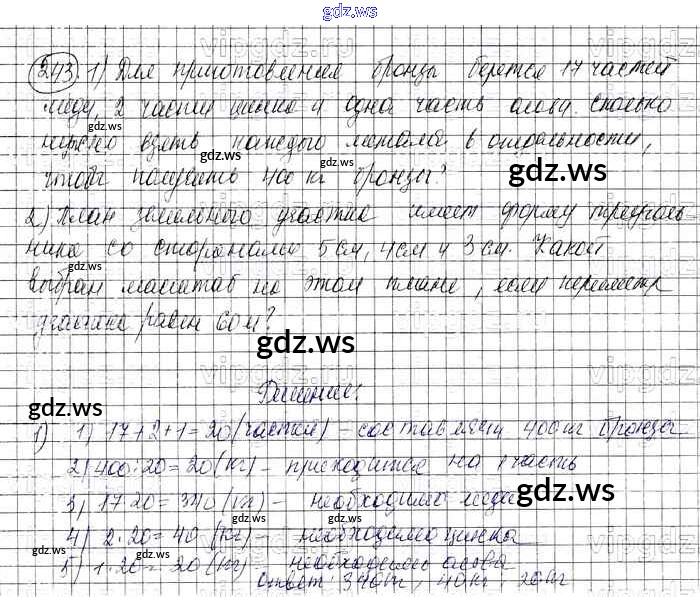 gdz.ws
243. 1) Для приготовления бронзы берется 17 частей
меди, 2 части цинка и одна часть олова. Сколько
нужно взять каждого металла в отдельности,
чтобы получить 400 кг бронзы?
2) План земельного участка имеет форму треуголь
ника со сторонами 5 см, 4 см и 3 см. Какой
выбран масштаб на этом плане, если периметр
участка равен 60 м?
Решение:
1) 1) 17+2+1=20 (частей) – составляют 400 кг бронзы
2) 400:20=20 (кг) – приходится на 1 часть
3) 17·20=340 (кг) – необходимо меди
4) 2·20=40 (кг) – необходимо цинка
5) 1·20=20 (кг) – необходимо олова
Ответ: 340 кг, 40 кг, 20 кг